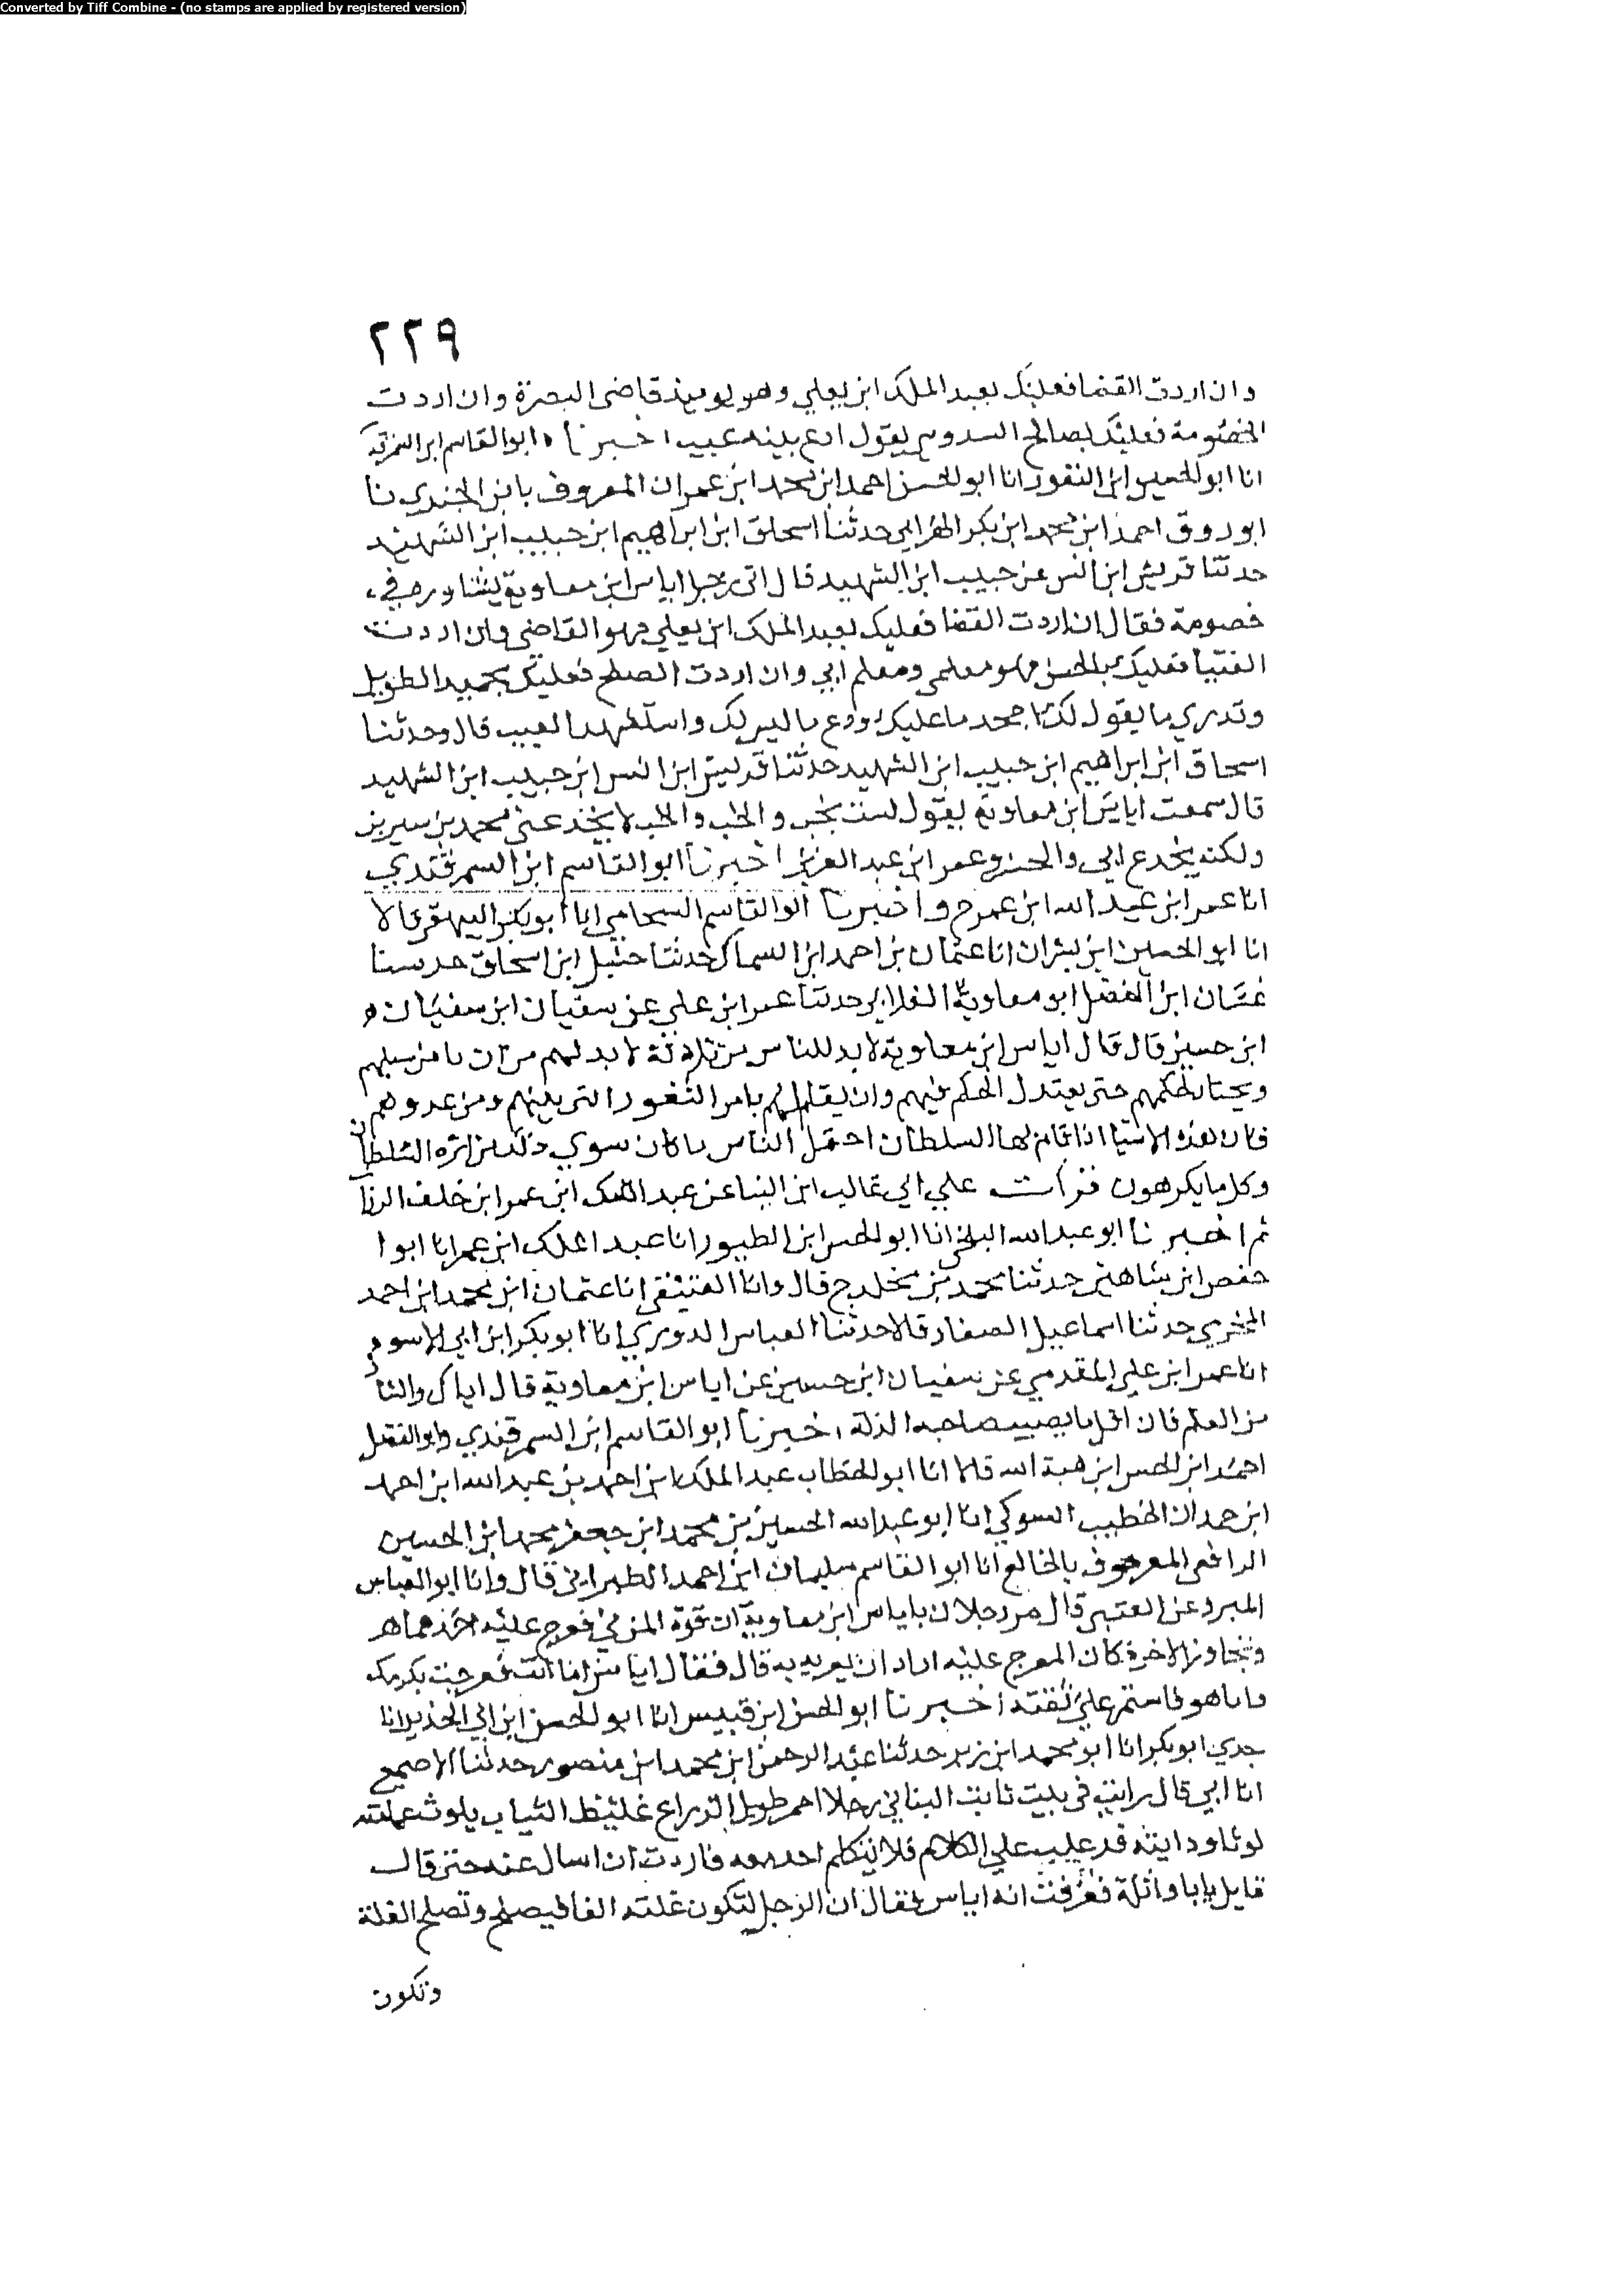 Converted by Tiff Combine - (no stamps are applied by registered version)
٢٢٩
وان اردت القضا فعليك بعبد الملك ابن يعلي وهو يوميذ قاضي البصرة وان اردت
الخصومة فعليك بصالح السدوسي يقول ادع بينه غيب اخبرنا ابو القاسم ابن السمرقند
انا ابو الحسين ابن النقور انا ابو الحسن احمد ابن محمد ابن عمران المعروف بابن الجندي نا
ابو روق احمد ابن محمد ابن بكر الهزاني حدثنا اسحاق ابن ابراهيم ابن حبيب ابن الشهيد
حدثنا قريش ابن انس عن حبيب ابن الشهيد قال اتى رجل اياس ابن معاوية يشاوره في
خصومة فقال ان اردت القضا فعليك بعبد الملك ابن يعلي فهو القاضي وان اردت
الفتيا فعليك بالحسن فهو معلمي ومعلم ابي وان اردت الصلح فعليك بحميد الطويل
وتدري ما يقول لك اجحد ما عليك ودع ما ليس لك واستشهد الغيب قال وحدثنا
اسحاق ابن ابراهيم ابن حبيب ابن الشهيد حدثنا قريش ابن انس ابن حبيب ابن الشهيد
قال سمعت اياس ابن معاوية يقول لست بخب و الخب والخب لا يخدعني محمد بن سيرين
ولكنه يخدع ابي والحسن وعمر ابن عبد العزيز اخبرنا ابو القاسم ابن السمرقندي
انا عمر ابن عبيد الله ابن عمر ح واخبرنا ابو القاسم الشحامي انا ابو بكر البيهقي قالا
انا ابو الحسين ابن بشران انا عثمان بن احمد ابن السماك حدثنا حنبل ابن اسحاق حدثنا
غسان ابن الفضل ابو معاوية الغلابي حدثنا عمر ابن علي عن سفيان ابن سفيان
ابن حسين قال قال اياس ابن معاوية لا بد للناس من ثلاثة لا بد لهم من ان تامن سبلهم
ويختار لحكمهم حتى يعتدل الحكم فيهم وان يقام لهم بامر الثغور التي بينهم ومن عدوهم
فان هذه الاشيا اذا قام بها السلطان احتمل الناس ما كان سوي ذلك من اثرة السلطان
وكل ما يكرهون قرات علي ابي غالب ابن البنا عن عبد الملك ابن عمر ابن خلف الرزاز
ثم اخبرنا ابو عبد الله البلخي انا ابو الحسين ابن الطيور انا عبد الملك ابن عمر انا ابوا
حفص ابن شاهين حدثنا محمد بن مخلد ح قال وانا العتيقي انا عثمان ابن محمد ابن احمد
المخرمي حدثنا اسماعيل الصفار قالا حدثنا العباس الدوري انا ابو بكر ابن ابي الاسود
انا عمر ابن علي المقدمي عن سفيان ابن حسين عن اياس ابن معاوية قال اياك والشاذ
من العلم فان اقل ما يصيب صاحبه الذلة اخبرنا ابو القاسم ابن السمرقندي وابو الفضل
احمد ابن الحسن ابن هبة الله قالا انا ابو الخطاب عبد الملك ابن احمد بن عبد الله ابن احمد
ابن حمدان الخطيب السوكي انا ابو عبد الله الحسين بن محمد ابن جعفر محمد ابن الحسين
الرافقي المعروف بالخالع انا ابو القاسم سليمان ابن احمد الطبراني قال وانا ابو العباس
المبرد عن العتبي قال مر رجلان باياس ابن معاوية ان قرة المزني فعرج عليه احدهما
وتجاوز الاخر كان المعرج عليه اراد ان يعرب به قال فقال اياس اما انت فعرجت بكرمك
واما هو فاستمر على ثقته اخبرنا ابو الحسن ابن قبيس انا ابو الحسن ابن ابي الحديد انا
جدي ابو بكر انا ابو محمد ابن زبر حدثنا عبد الرحمن ابن محمد ابن منصور حدثنا الاصمعي
انا ابي قال رايت في بيت ثابت البناني رجلا احمر طويل الذراع غليظ الثياب يلوث عمامته
لوثا ورايته قد غلب علي الكلام فلا يتكلم احد معه فاردت ان اسال عنه حتى قال
قايل يا ابا واثلة فعرفت انه اياس فقال ان الرجل لتكون غلته الفا فيصلح وتصلح الغلة
وتكون